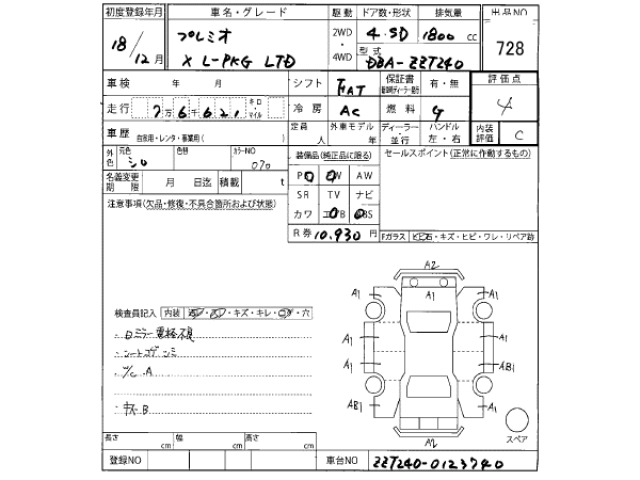 初度登録年月 車名・グレード 駆動 ドア数・形状 排気量 出品NO
18/12月 プレミオ X L-PKG LTD 2WD・4WD 4・SD 1800cc 728
型式 DBA-ZZT240
車検 年 月 シフト FAT 保証書 有・無 評価点
走行 7万6千621 キロ・マイル 冷房 AC 燃料 G 4
車歴 自家用・レンタ・事業用( ) 定員 人 外車モデル 年 ディーラー・並行 ハンドル 左・右 内装評価 C
外色 元色 シロ 色替 カラーNO 070 装備品(純正品に限る) セールスポイント(正常に作動するもの)
名義変更期限 月 日迄 積載 t
PS PW AW
SR TV ナビ
カワ エアB ABS
注意事項(欠品・修復・不具合箇所および状態)
R券 10,930円 Fガラス 飛石・キズ・ヒビ・ワレ・リペア跡
A2
A1 A1 A1
検査員記入 内装 ・キズ・キレ・コゲ・穴
A1 A1
・ミラー電格不良
・シートコゲ シミ
A1 AB1
・A
AB1 A1
・B
A2
スペア
長さ cm 幅 cm 高さ cm
登録NO 車台NO ZZT240-0123740